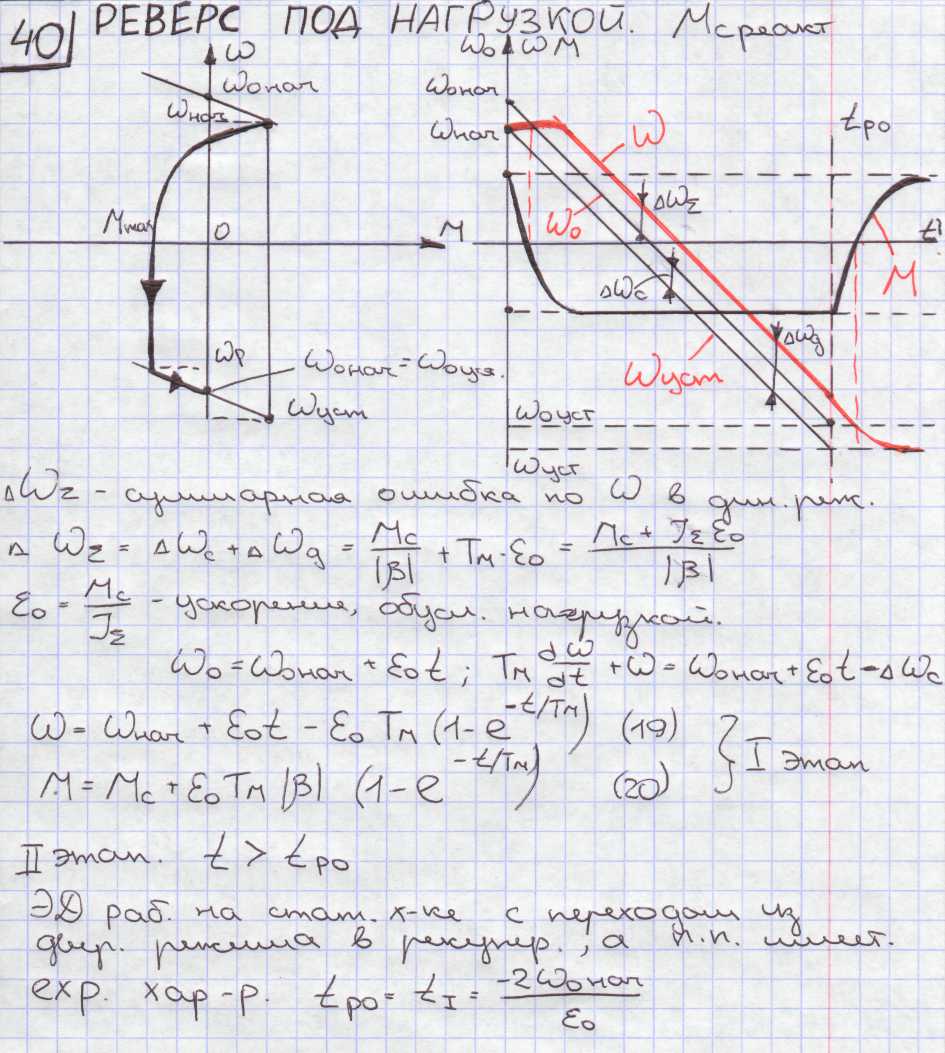 40 РЕВЕРС ПОД НАГРУЗКОЙ. Mс реакт
ω
ω₀нач
ωнач
Mmax
0
M
ωр
ω₀нач = ω₀уз.
ωуст
ω₀ ω M
ω₀нач
ωнач
tро
ω
ω₀
ΔωΣ
Δωс
Δωg
t
M
ωуст
ω₀уст
ωуст
ΔωΣ - суммарная ошибка по ω в дин. реж.
Δ ωΣ = Δωс + Δωg = Mс/|β| + Tм·ε₀ = (Mс + JΣ ε₀)/|β|
ε₀ = Mс/JΣ - ускорение, обусл. нагрузкой.
ω₀ = ω₀нач + ε₀t ; Tм dω/dt + ω = ω₀нач + ε₀t - Δωс
ω = ωнач + ε₀t - ε₀ Tм (1 - e^(-t/Tм)) (19)
M = Mс + ε₀ Tм |β| (1 - e^(-t/Tм)) (20)
I этап
II этап. t > tро
ЭД раб. на стат. х-ке с переходом из
двиг. режима в рекупер., а п.п. имеет.
exp. хар-р. tро = tI = -2ω₀нач/ε₀